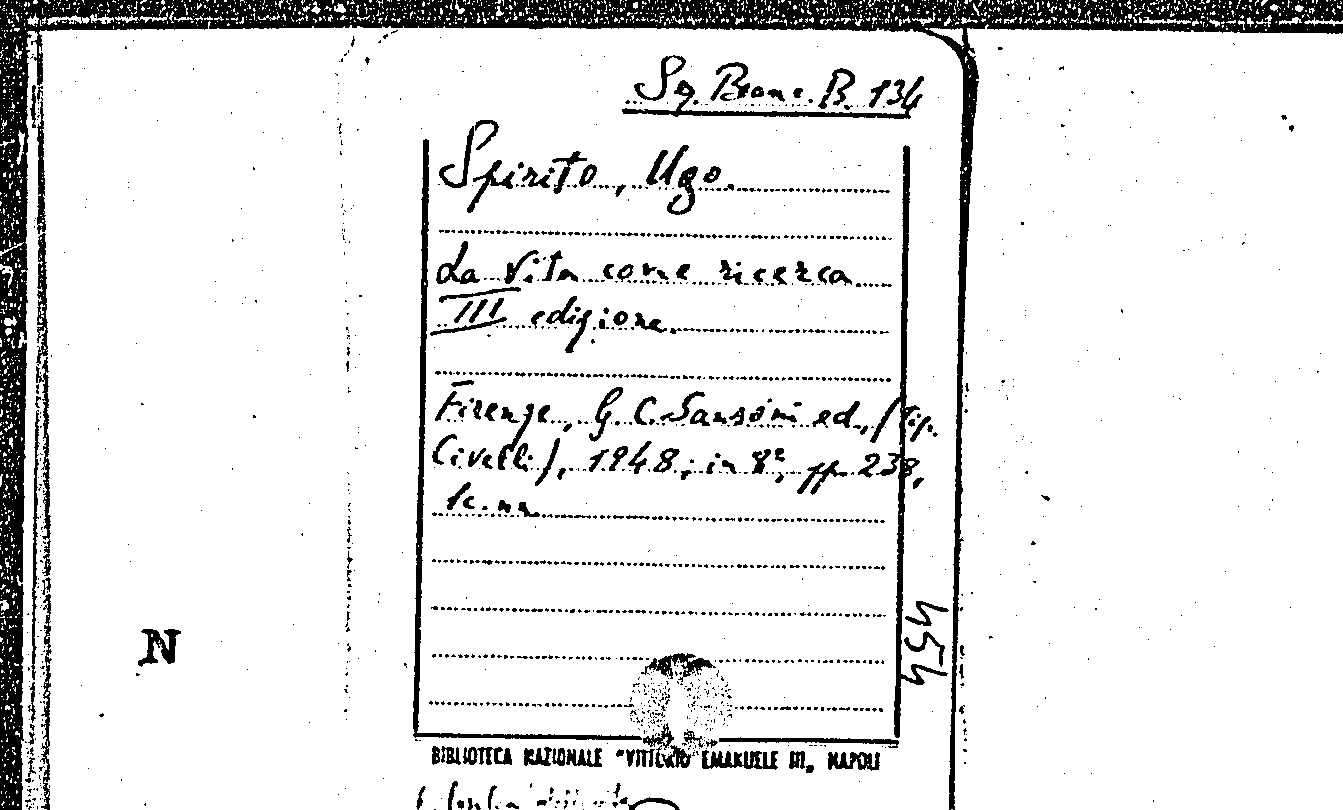 Sg. Branc. B. 134
Spirito, Ugo.
La Vita come ricerca
III edizione.
Firenze, G. C. Sansoni ed., (Tip.
Civelli), 1948; in 8º, pp. 238,
1c. nn.
454
N
BIBLIOTECA NAZIONALE "VITTORIO EMANUELE III", NAPOLI